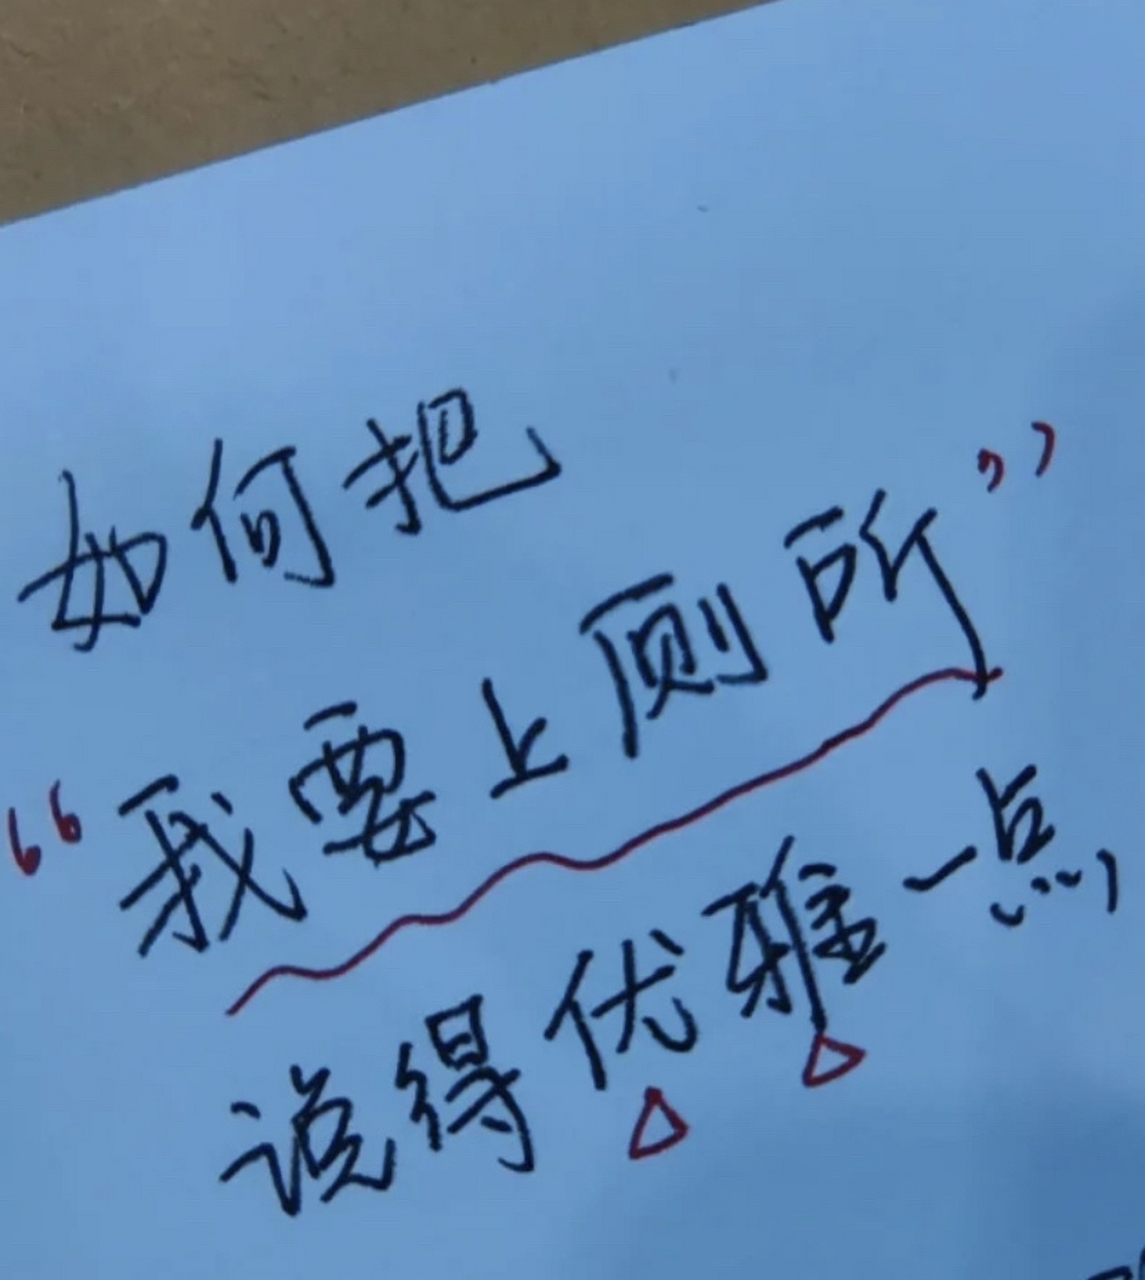 如何把
“我要上厕所”
说得优雅一点